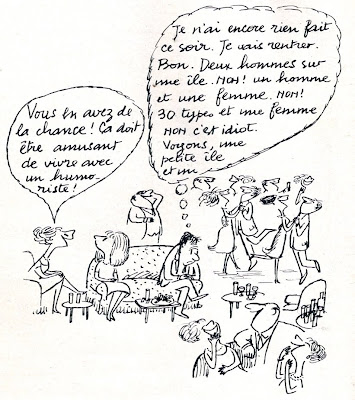 Vous en avez de
la chance! Ça doit
être amusant
de vivre avec
un humo-
riste!
Je n'ai encore rien fait
ce soir. Je vais rentrer.
Bon. Deux hommes sur
une île. NON! un homme
et une femme. NON!
30 types et une femme
NON c'est idiot.
Voyons, une
petite île
et un